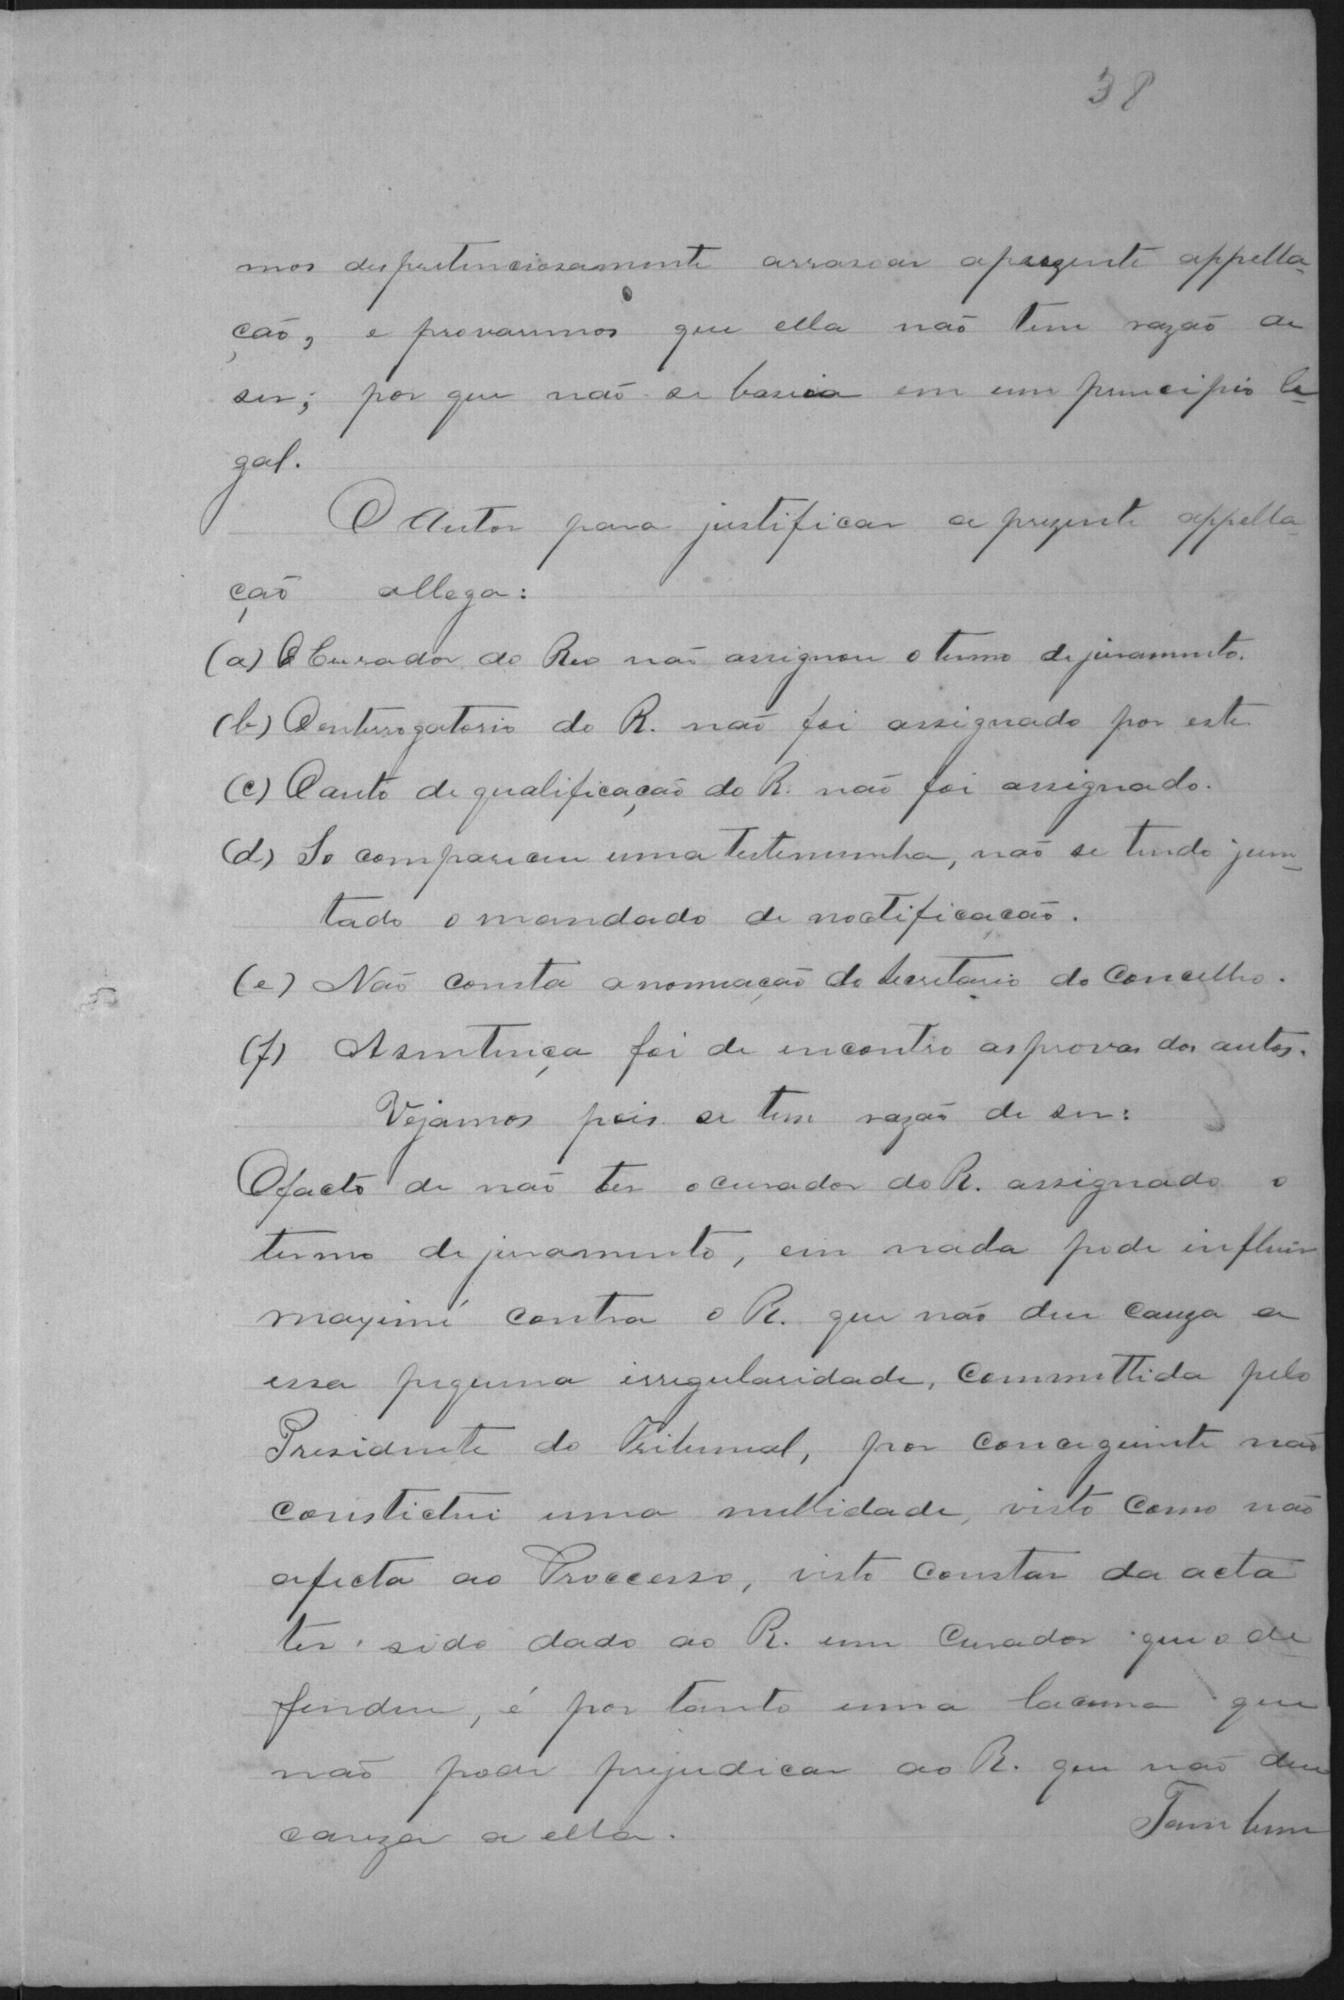 38
mos despretenciosamente arrasoar aprezente appella-
ção, e provarmos que ella não tem razão de
ser; por que não se baseia em um principio le-
gal.
O Autor para justificar a prezente appella-
ção allega:
(a) O Curador do Reo não assignou o termo de juramento.
(b) O enterrogatorio do R. não foi assignado por este
(c) O auto de qualificação do R. não foi assignado.
(d) So compareceu uma testemunha, não se tendo jun-
tado o mandado de noctificacão.
(e) Não consta a nomeação do Secretario do Concelho.
(f) A sentença foi de encontro as provas dos autos.
Vejamos pois se tem razão de ser:
O facto de não ter o curador do R. assignado o
termo de juramento, em nada pode influir
maximé contra o R. que não deu cauza a
essa pequena irregularidade, committida pelo
Presidente do Tribunal, por conceguinte não
constictui uma nullidade, visto como não
afecta ao Proccesso, visto constar da acta
ter sido dado ao R. um Curador que o de
fendeu, é por tanto uma lacuna que
não pode prejudicar ao R. que não deu
cauza a ella. Tambem